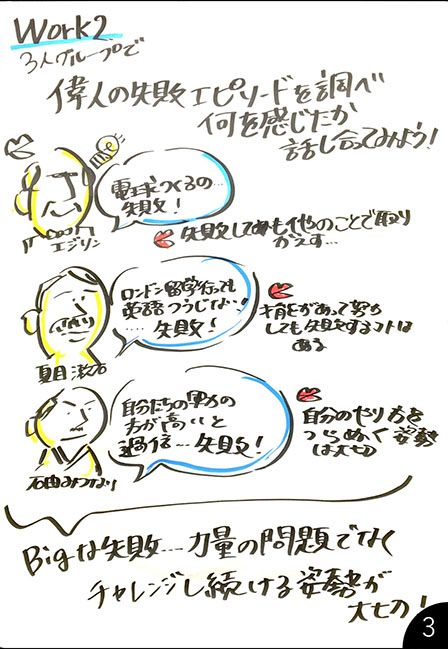 Work2
3人グループで
偉人の失敗エピソードを調べ
何を感じたか
話し合ってみよう!
電球つくるの…
失敗!
エジソン
失敗しても他のことで取り
かえす…
ロンドン留学行っても
英語つうじない!
…失敗!
夏目漱石
才能があって努力
しても失敗するコトは
ある
自分たちの実力の
方が高いと
過信…失敗!
石田みつなり
自分のやり方を
つらぬく姿勢
は大切
Bigな失敗…力量の問題でなく
チャレンジし続ける姿勢が
大切!
3